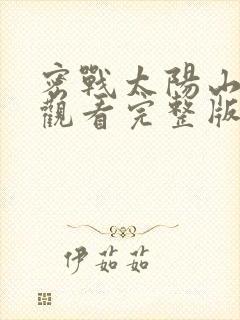 密戰太陽山
觀看完整版
伊茹茹